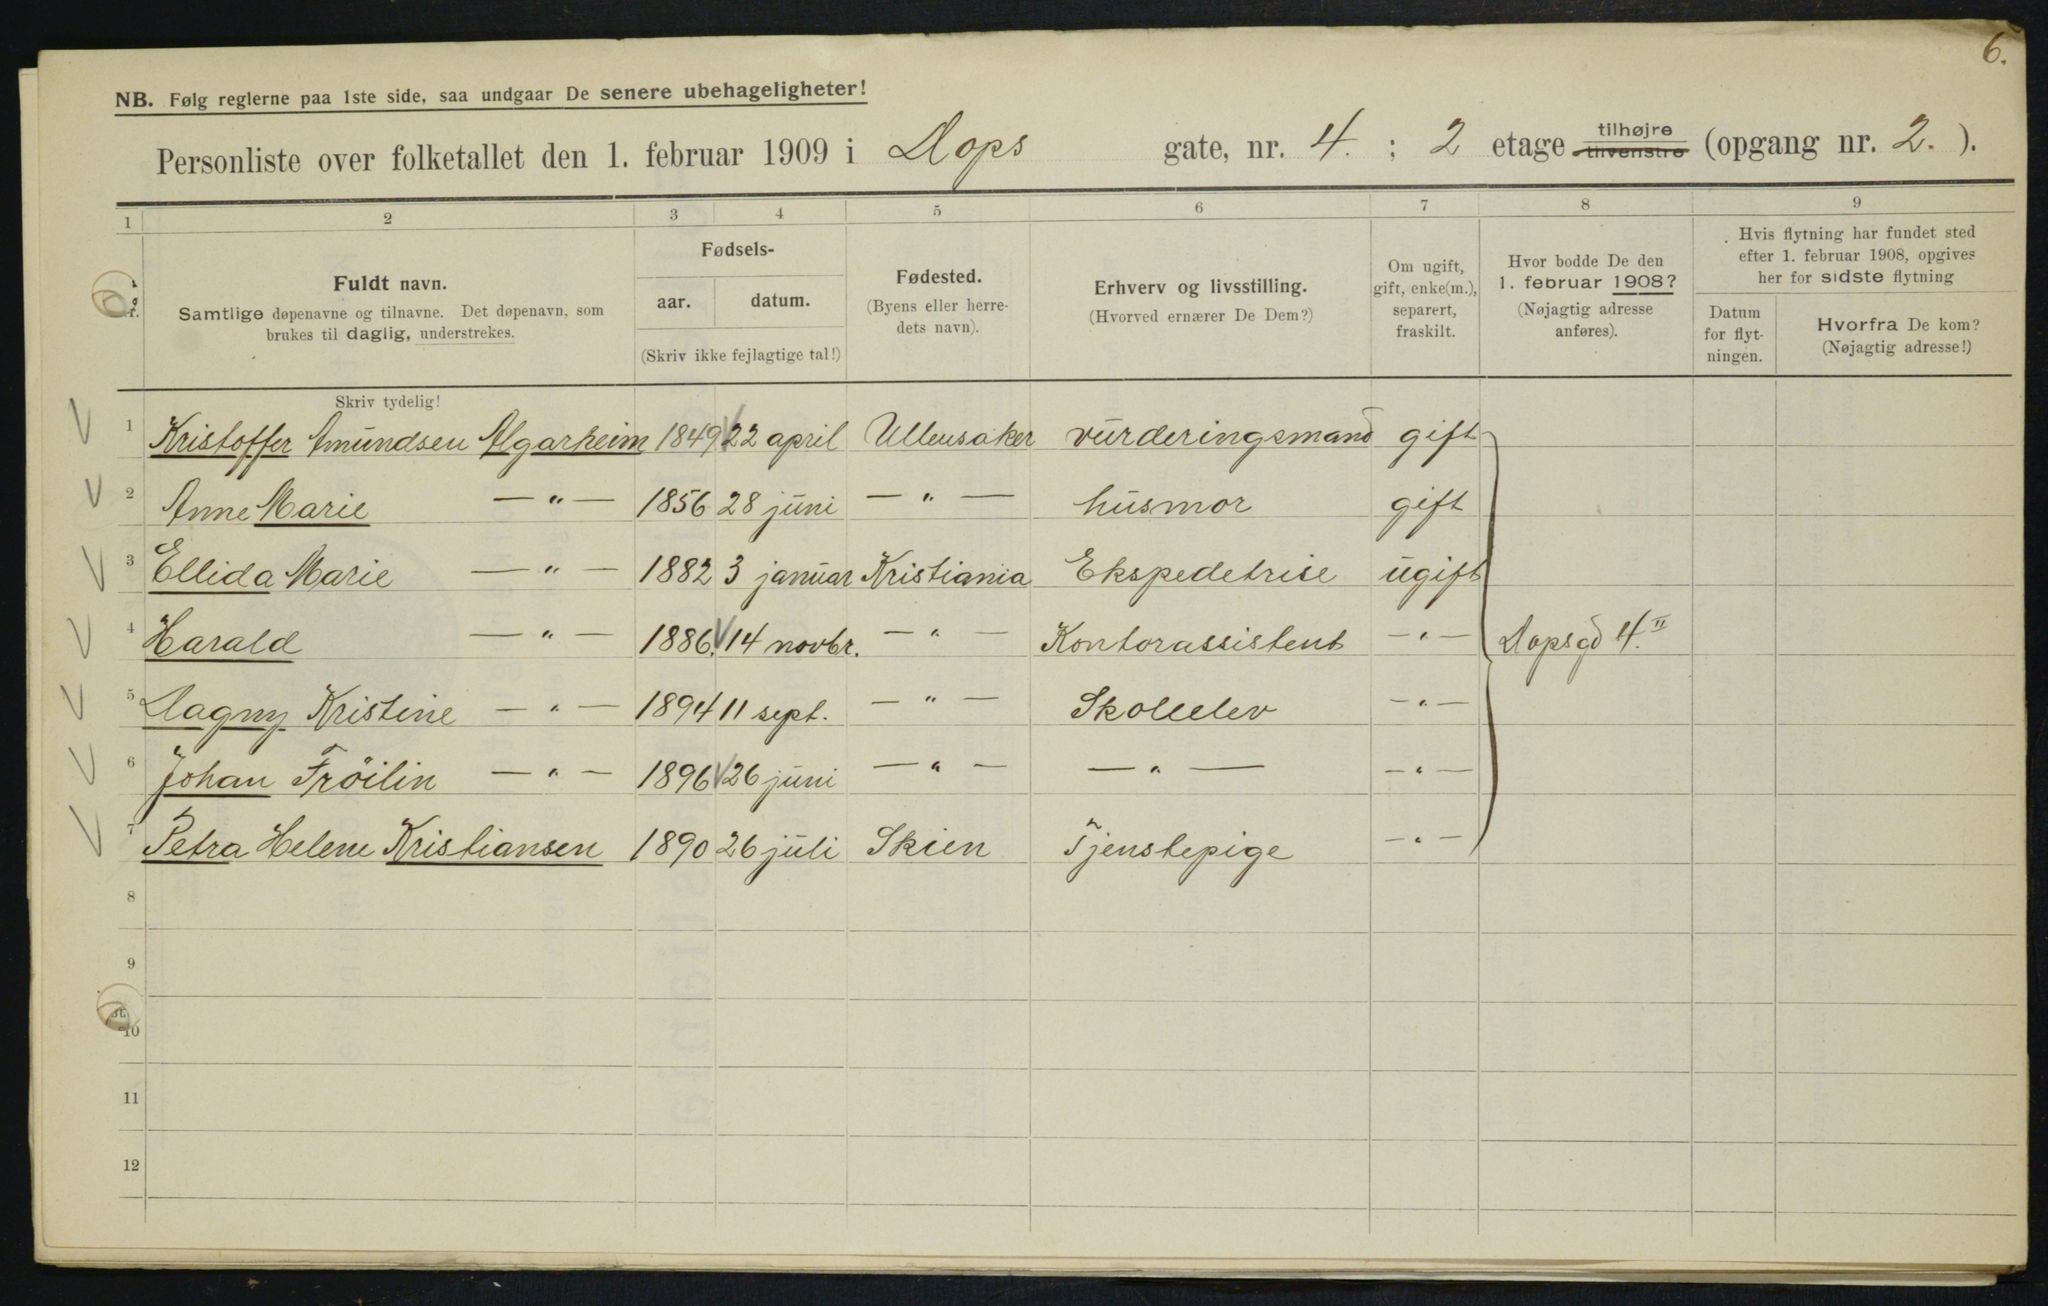 6.
NB. Følg reglerne paa 1ste side, saa undgaar De senere ubehageligheter!
Personliste over folketallet den 1. februar 1909 i Dops gate, nr. 4. ; 2 etage tilhøjre tilvenstre (opgang nr. 2. ).
1 2 3 4 5 6 7 8 9
Fuldt navn.
Samtlige døpenavne og tilnavne. Det døpenavn, som
brukes til daglig, understrekes.
Fødsels-
aar. datum.
(Skriv ikke fejlagtige tal!)
Fødested.
(Byens eller herre-
dets navn).
Erhverv og livsstilling.
(Hvorved ernærer De Dem?)
Om ugift,
gift, enke(m.),
separert,
fraskilt.
Hvor bodde De den
1. februar 1908?
(Nøjagtig adresse
anføres).
Hvis flytning har fundet sted
efter 1. februar 1908, opgives
her for sidste flytning
Datum
for flyt-
ningen.
Hvorfra De kom?
(Nøjagtig adresse!)
Skriv tydelig!
1 Kristoffer Amundsen Algarheim 1849 22 april Ullensaker vurderingsmand gift
2 Anne Marie — " — 1856 28 juni — " — husmor gift
3 Ellida Marie — " — 1882 3 januar Kristiania Ekspedetrise ugift
4 Harald — " — 1886. 14 novbr. — " — Kontorassistent — " — Dopsgd 4. II
5 Dagny Kristine — " — 1894 11 sept. — " — Skoleelev — " —
6 Johan Fröilin — " — 1896 26 juni — " — — " — — " —
7 Petra Helene Kristiansen 1890 26 juli Skien Tjenstepige — " —
8
9
10
11
12